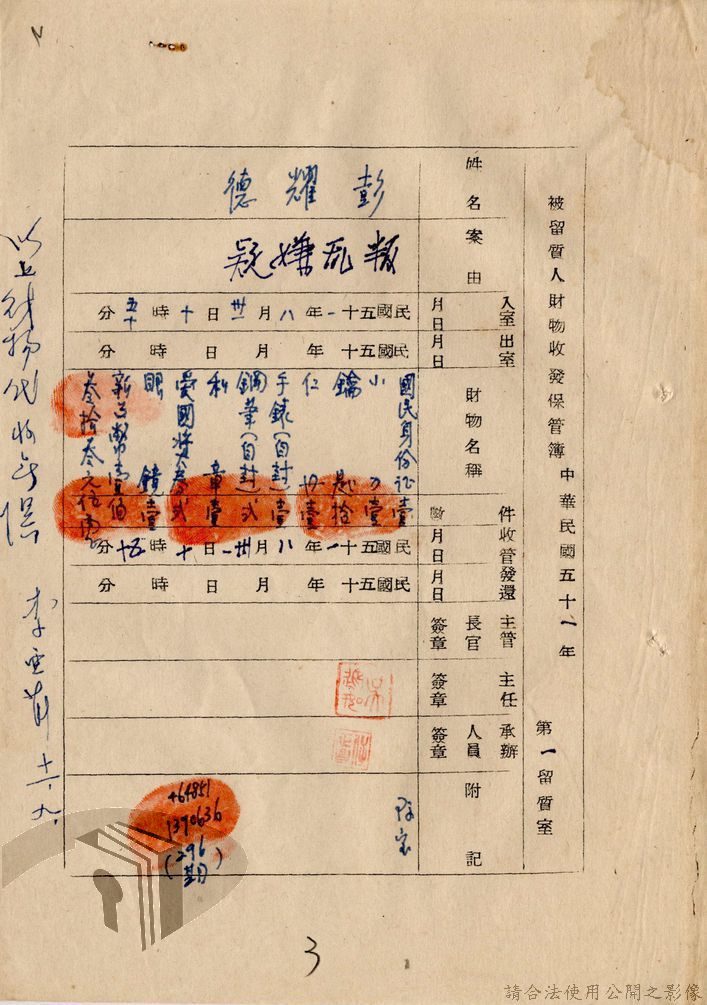 被留質人財物收發保管簿 中華民國五十一年 第一留質室
姓名
彭耀德
案由
叛亂嫌疑
入室月日
民國五十一年八月卅一日十時五十分
出室月日
民國五十年月日時分
財物名稱
件數
國民身份証壹
小刀壹
鑰匙拾
仁丹壹
手錶(自封)壹
鋼筆(自封)弍
私章壹
愛國獎券弍
眼鏡壹
新台幣壹佰
叁拾叁元伍角
收管月日
民國五十一年八月卅一日十時十五分
發還月日
民國五十年月日時分
主管長官簽章
主任簽章
承辦人員簽章
附記
464851
1390636
(296期)
以上財物代收無誤
十一.九.
3
請合法使用公開之影像